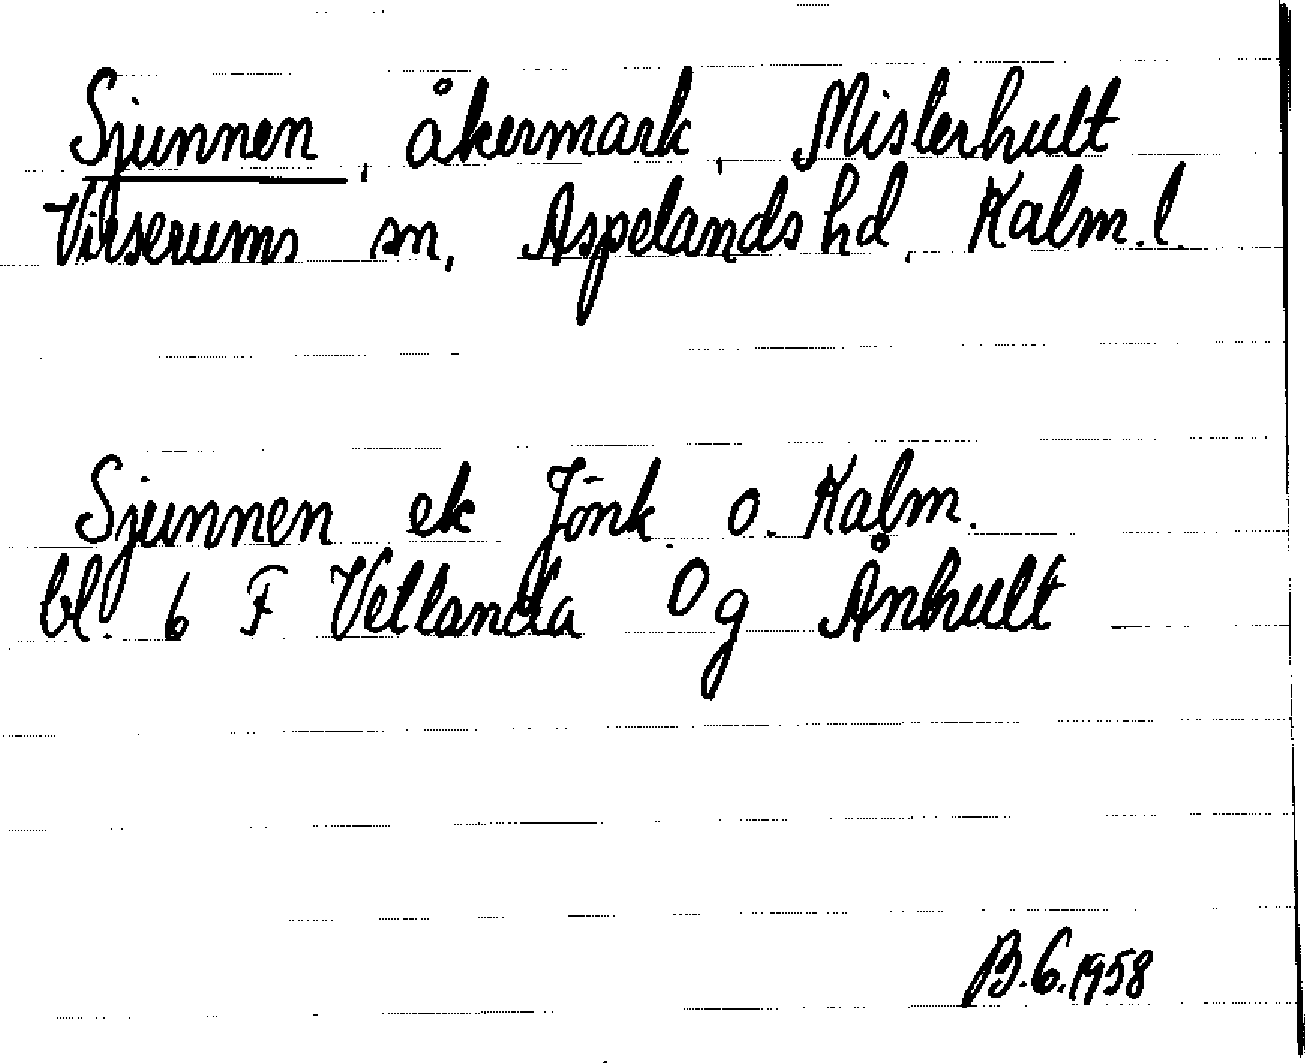 Sjunnen, åkermark, Misterhult
Virserums sn, Aspelands hd, Kalm. l.
Sjunnen ek Jönk. o. Kalm.
bl. 6 F Vetlanda 0 g Ånhult
B.G.1958